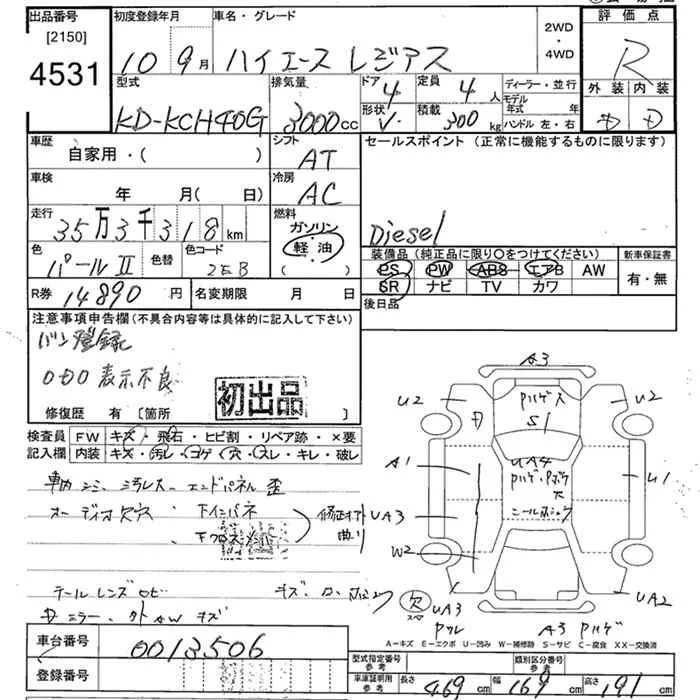 出品番号
[2150]
4531
初度登録年月
10 9月
車名・グレード
ハイエース レジアス
2WD
・
4WD
評価点
R
外装 内装
D D
型式
KD-KCH40G
排気量
3000cc
ドア 4
形状 V
定員 4人
積載 300 kg
ディーラー・並行
モデル
年式 年
ハンドル 左・右
車歴
自家用・( )
シフト
AT
セールスポイント (正常に機能するものに限ります)
Diesel
車検
年 月( 日)
冷房
AC
走行
35万3千318km
燃料
ガソリン
軽油
( )
色
パールII
色替
色コード
2EB
装備品 (純正品に限り〇をつけてください)
PS PW ABS エアB AW
SR ナビ TV カワ
新車保証書
有・無
R券 14890円
名変期限 月 日
後日品
注意事項申告欄 (不具合内容等は具体的に記入して下さい)
バン登録
ODO表示不良
初出品
修復歴 有 [箇所 ]
検査員 FW キズ・飛石・ヒビ割・リペア跡・×要
記入欄 内装 キズ・汚レ・コゲ・穴・スレ・キレ・破レ
車内シミ 汚レ大 エンドパネル歪
オーディオ欠穴・下インパネ
修正
曲り
テールレンズ
キズ
ドアミラー 外 AW キズ
A3
U2
U2
D
S1
A1
UA4
U1
UA3
W2
欠
UA3
UA2
A3
A－キズ E－エクボ U－凹み W－補修跡 S－サビ C－腐食 XX－交換済
車台番号 0013506
登録番号
型式指定番号
参考
類別区分番号
参考
車庫証明用
参考
長さ 469cm 幅 169cm 高さ 191cm